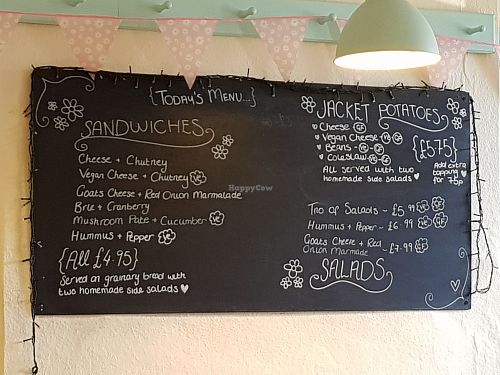 {Today's Menu...}
SANDWICHES
Cheese + Chutney
Vegan Cheese + Chutney VE
Goats Cheese + Red Onion Marmalade
Brie + Cranberry
Mushroom Pate + Cucumber VE
Hummus + Pepper VE
{All £4.95}
Served on granary bread with
two homemade side salads
JACKET POTATOES
Cheese GF
Vegan Cheese VE GF
Beans - VE - GF
Coleslaw VE GF
All served with two
homemade side salads
{£5.75}
Add extra
topping
for 75p
Trio of Salads - £5.99 VE GF
Hummus + Pepper - £6.99 VE GF
Goats Cheese + Red
Onion Marmade - £7.99 GF
SALADS
HappyCow